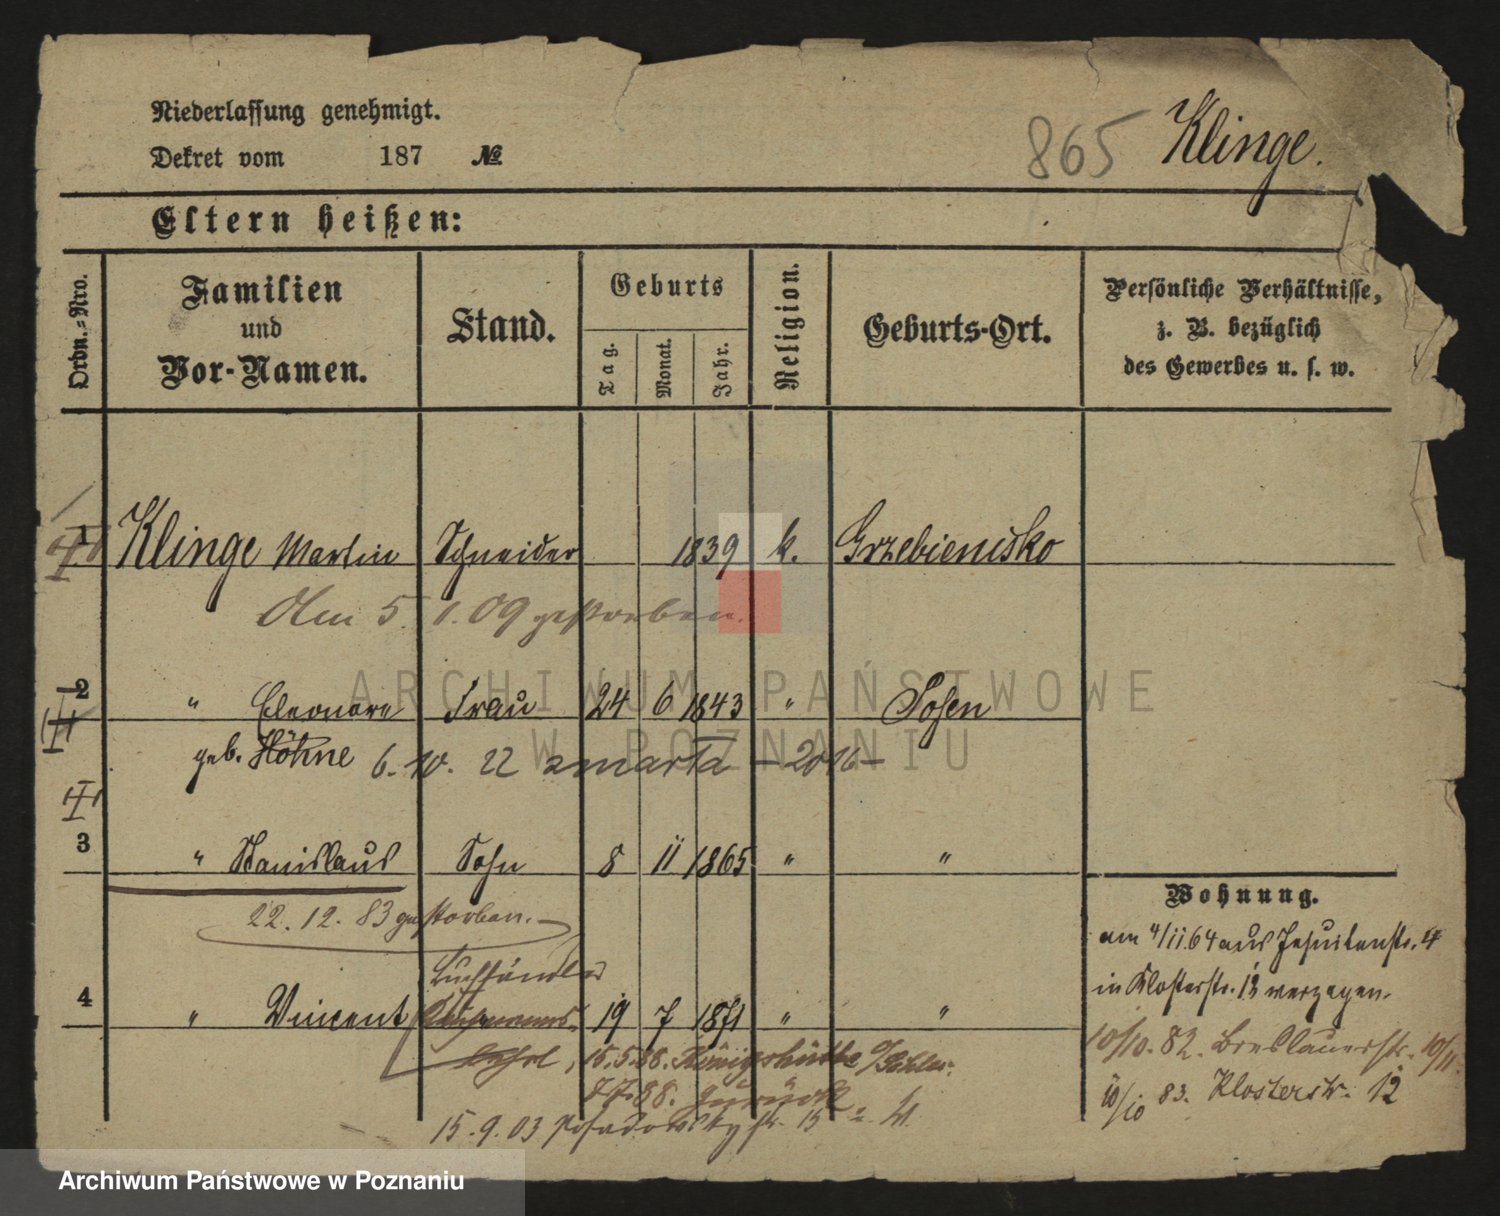 Niederlassung genehmigt.
Dekret vom 187 №
865 Klinge.
Eltern heißen:
Ordn.=Nro.
Familien und Vor-Namen.
Stand.
Geburts
Tag. Monat. Jahr.
Religion.
Geburts-Ort.
Persönliche Verhältnisse, z. B. bezüglich des Gewerbes u. s. w.
1 Klinge Martin Schneider 1839 k. Grzebienisko
Am 5. 1. 09 gestorben.
2 " Eleonore Frau 24 6 1843 " Posen
geb. Höhne 6. 10. 22 zmarła - 2016 -
3 " Stanislaus Sohn 8 11 1865 " "
22. 12. 83 gestorben. -
Buchhändler
4 " Vincent 19 7 1871 " "
Lehrl, 15.5.88. Königshütte
7.7.88. zurück
15.9.03 Posadowskystr. 15
Wohnung.
am 4/11 64 aus Jesuitenstr. 4
in Klosterstr. 12 verzogen.
10/10. 82. Breslauerstr. 10/11.
10/10 83. Klosterstr. 12
ARCHIWUM PAŃSTWOWE
W POZNANIU
Archiwum Państwowe w Poznaniu